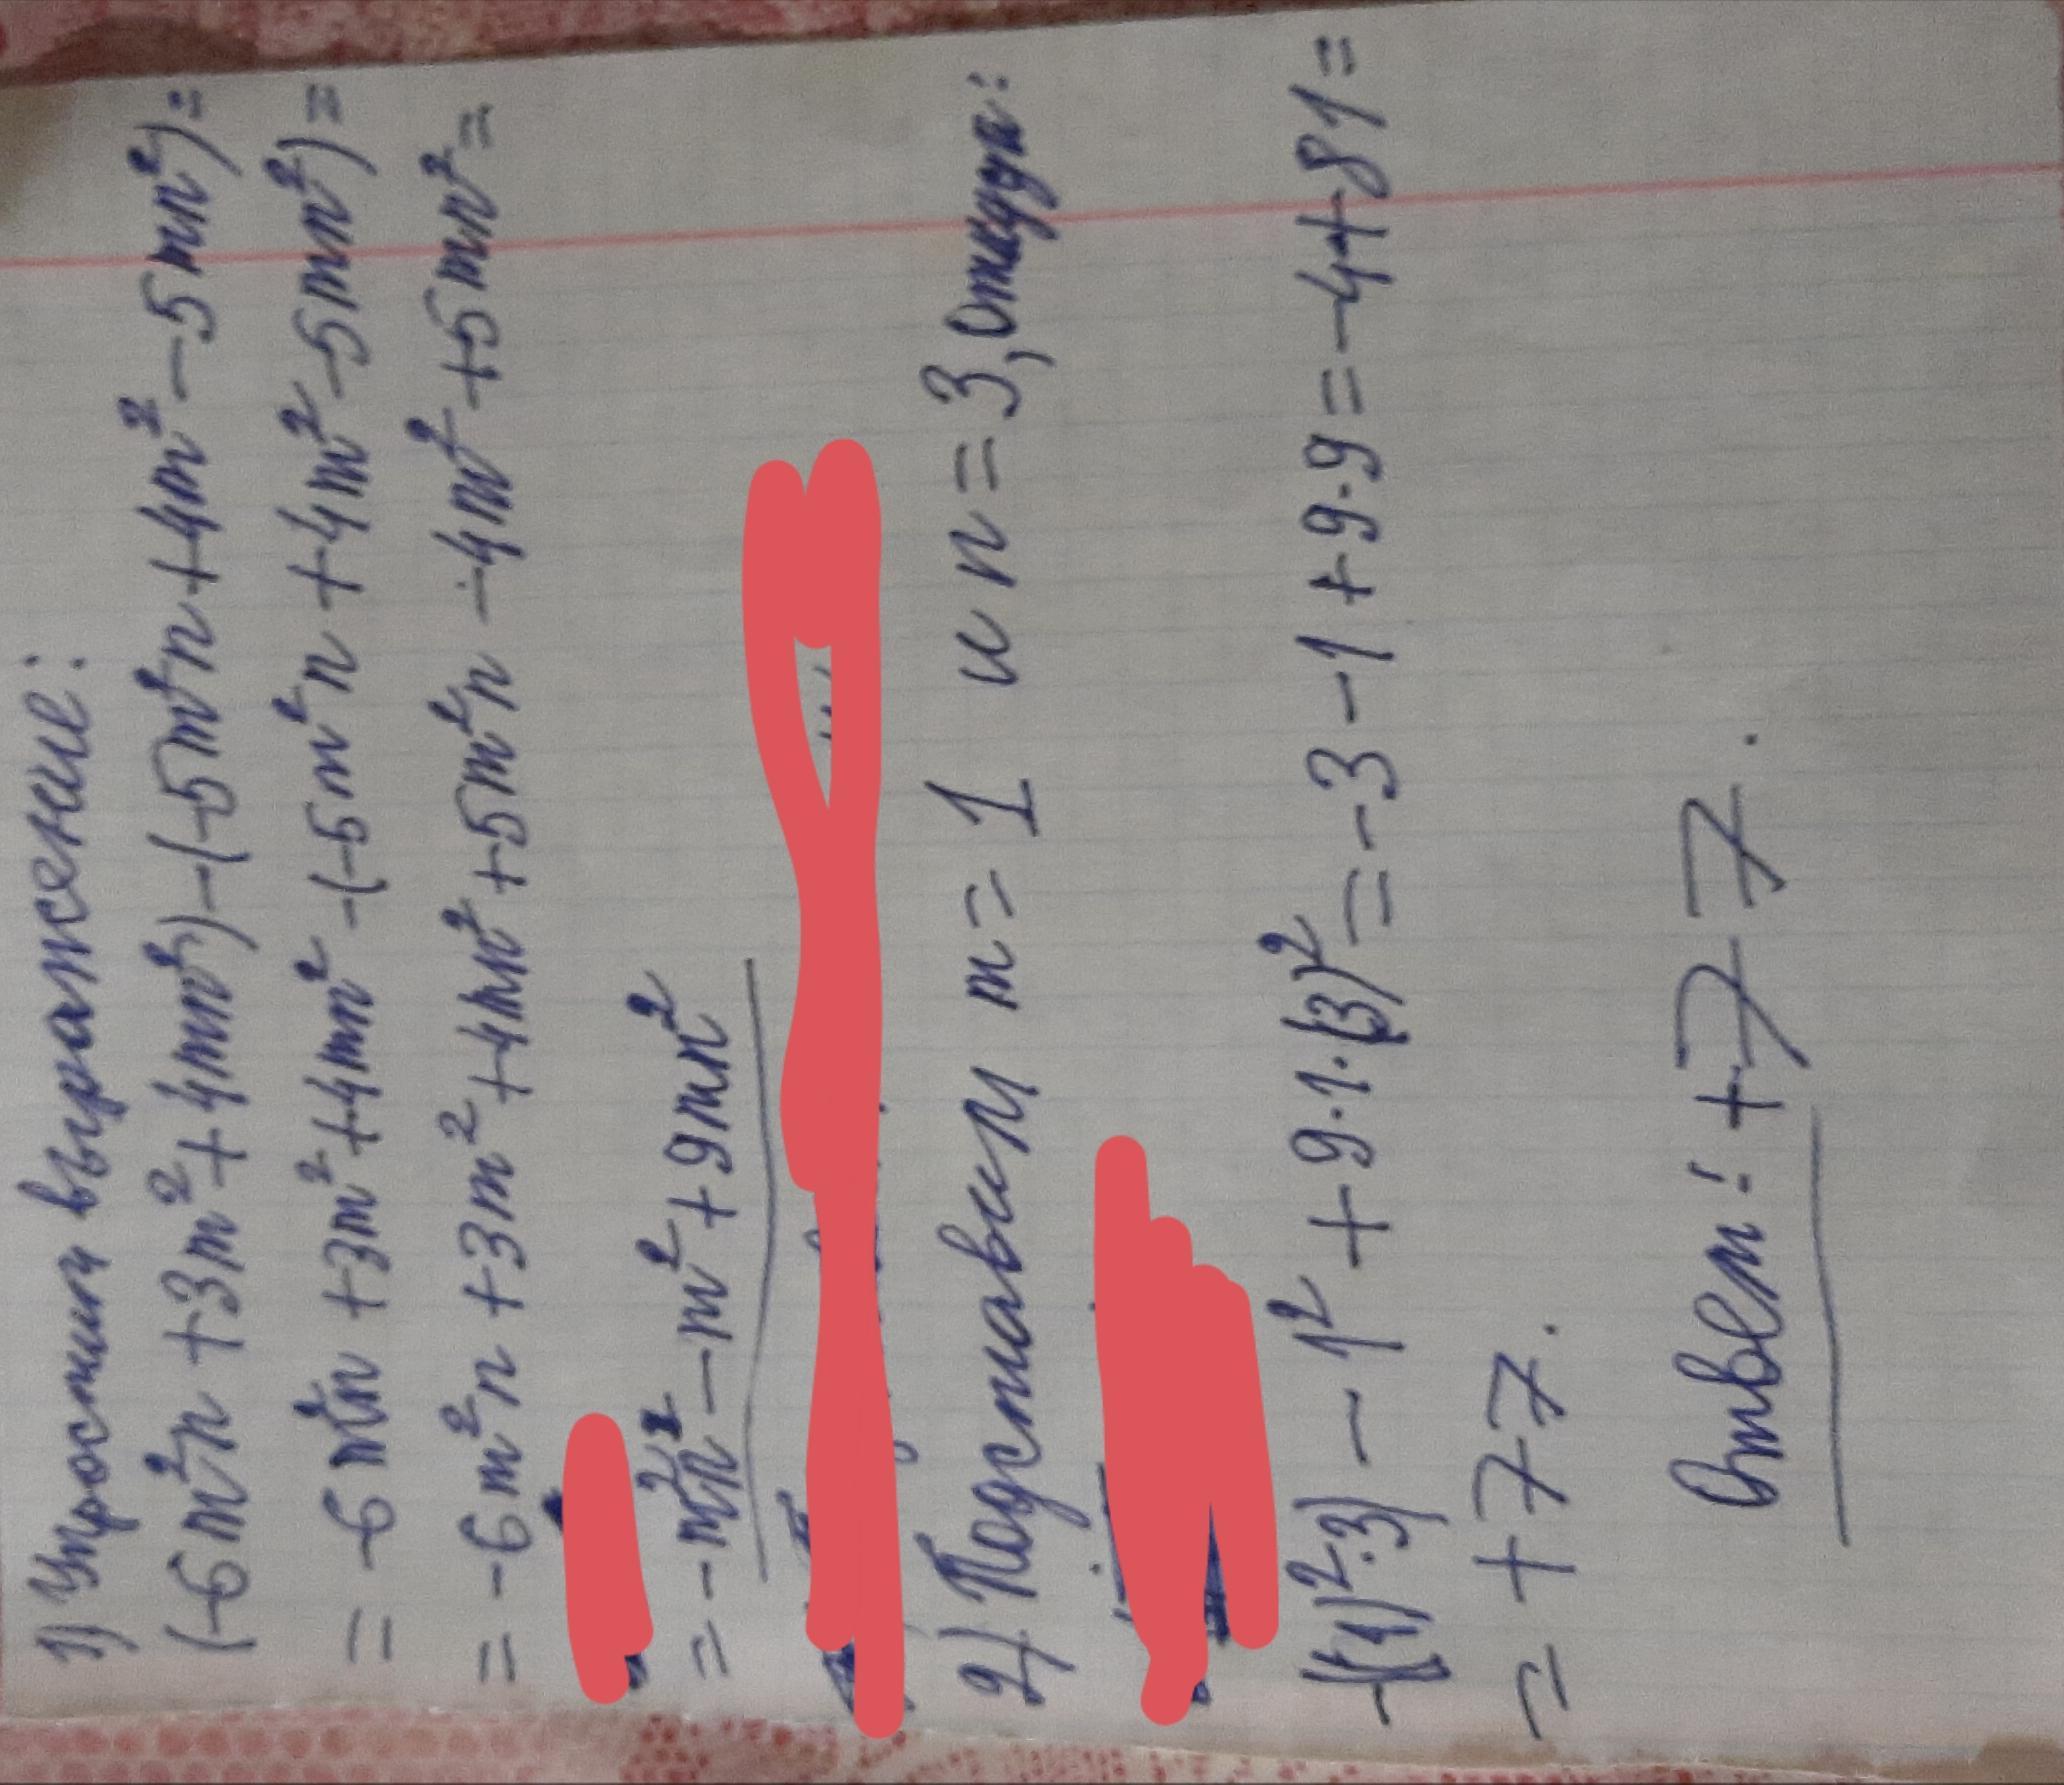 1) Упростим выражение:
(-6m²n + 3m² + 4mn²) - (-5m²n + 4m² - 5mn²) =
= -6m²n + 3m² + 4mn² - (-5m²n + 4m² - 5mn²) =
= -6m²n + 3m² + 4mn² + 5m²n - 4m² + 5mn² =
= -m²n - m² + 9mn²
2) Подставим m = 1 и n = 3, откуда:
-((1)²·3) - 1² + 9·1·(3)² = -3 - 1 + 9·9 = -4 + 81 =
= +77.
Ответ: +77.